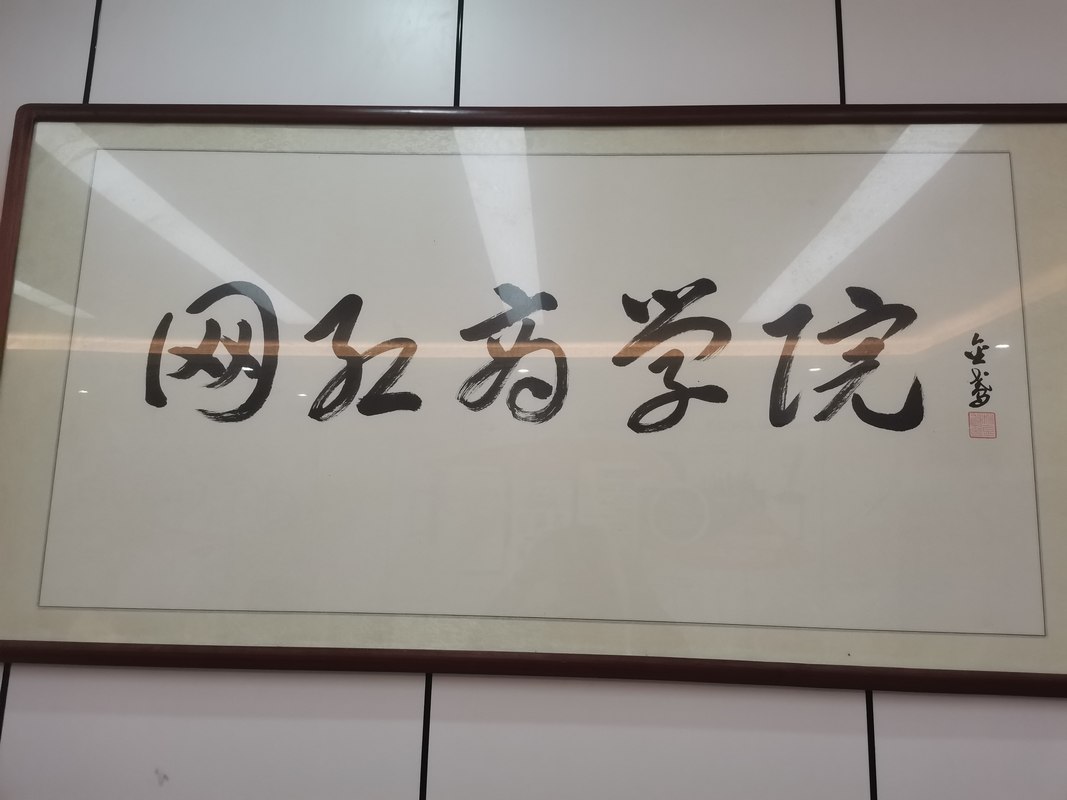 网红商学院